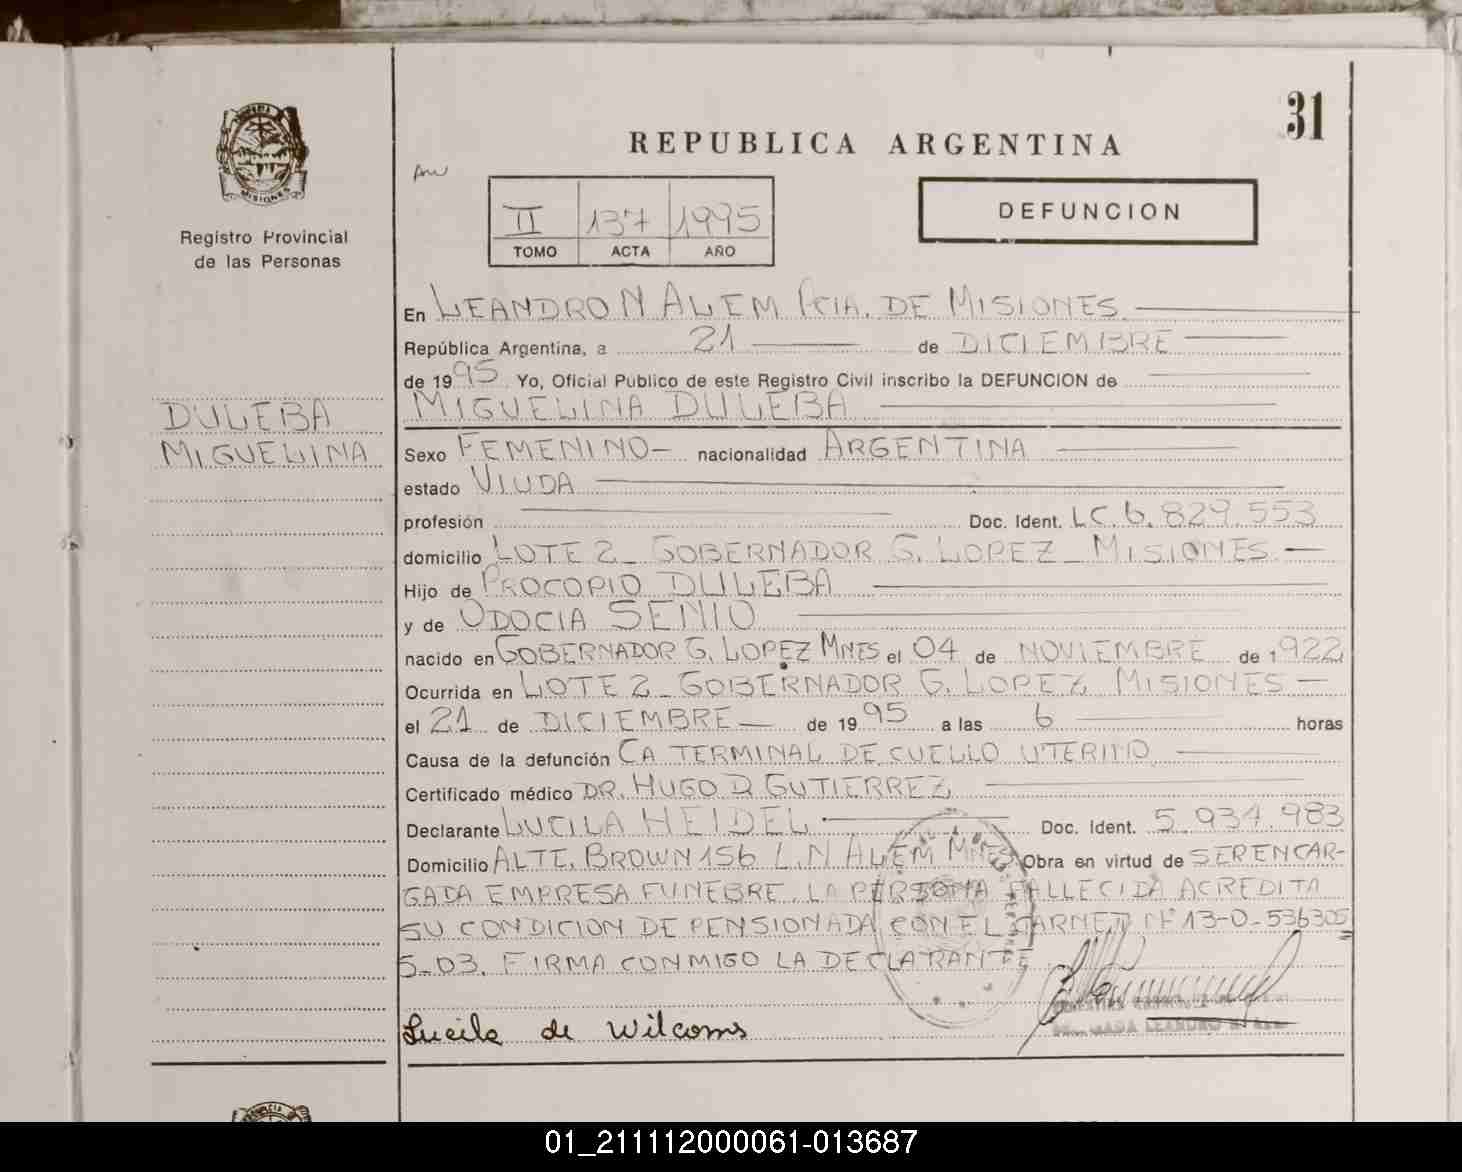 31
REPUBLICA ARGENTINA
MISIONES
Registro Provincial
de las Personas
II 137 1995
TOMO ACTA AÑO
DEFUNCION
DULEBA
MIGUELINA
En LEANDRO N ALEM PCIA. DE MISIONES
República Argentina, a 21 de DICIEMBRE
de 1995 Yo, Oficial Público de este Registro Civil inscribo la DEFUNCION de
MIGUELINA DULEBA
Sexo FEMENINO- nacionalidad ARGENTINA
estado VIUDA
profesión Doc. Ident. LC.6.829.553
domicilio LOTE 2_ GOBERNADOR G. LOPEZ_ MISIONES
Hijo de PROCOPIO DULEBA
y de UDOCIA SENIO
nacido en GOBERNADOR G. LOPEZ MNES el 04 de NOVIEMBRE de 1922
Ocurrida en LOTE 2_ GOBERNADOR G. LOPEZ MISIONES
el 21 de DICIEMBRE de 1995 a las 6 horas
Causa de la defunción CA TERMINAL DE CUELLO UTERINO
Certificado médico DR. HUGO D GUTIERREZ
Declarante LUCILA HEIDEL Doc. Ident. 5.934.983
Domicilio ALTE. BROWN 156 L.N ALEM MNES Obra en virtud de SER ENCAR-
GADA EMPRESA FUNEBRE. LA PERSONA FALLECIDA ACREDITA
SU CONDICION DE PENSIONADA CON EL CARNET Nº 13-0-536305
5-03. FIRMA CONMIGO LA DECLARANTE
Lucila de Wilcoms
01_211112000061-013687